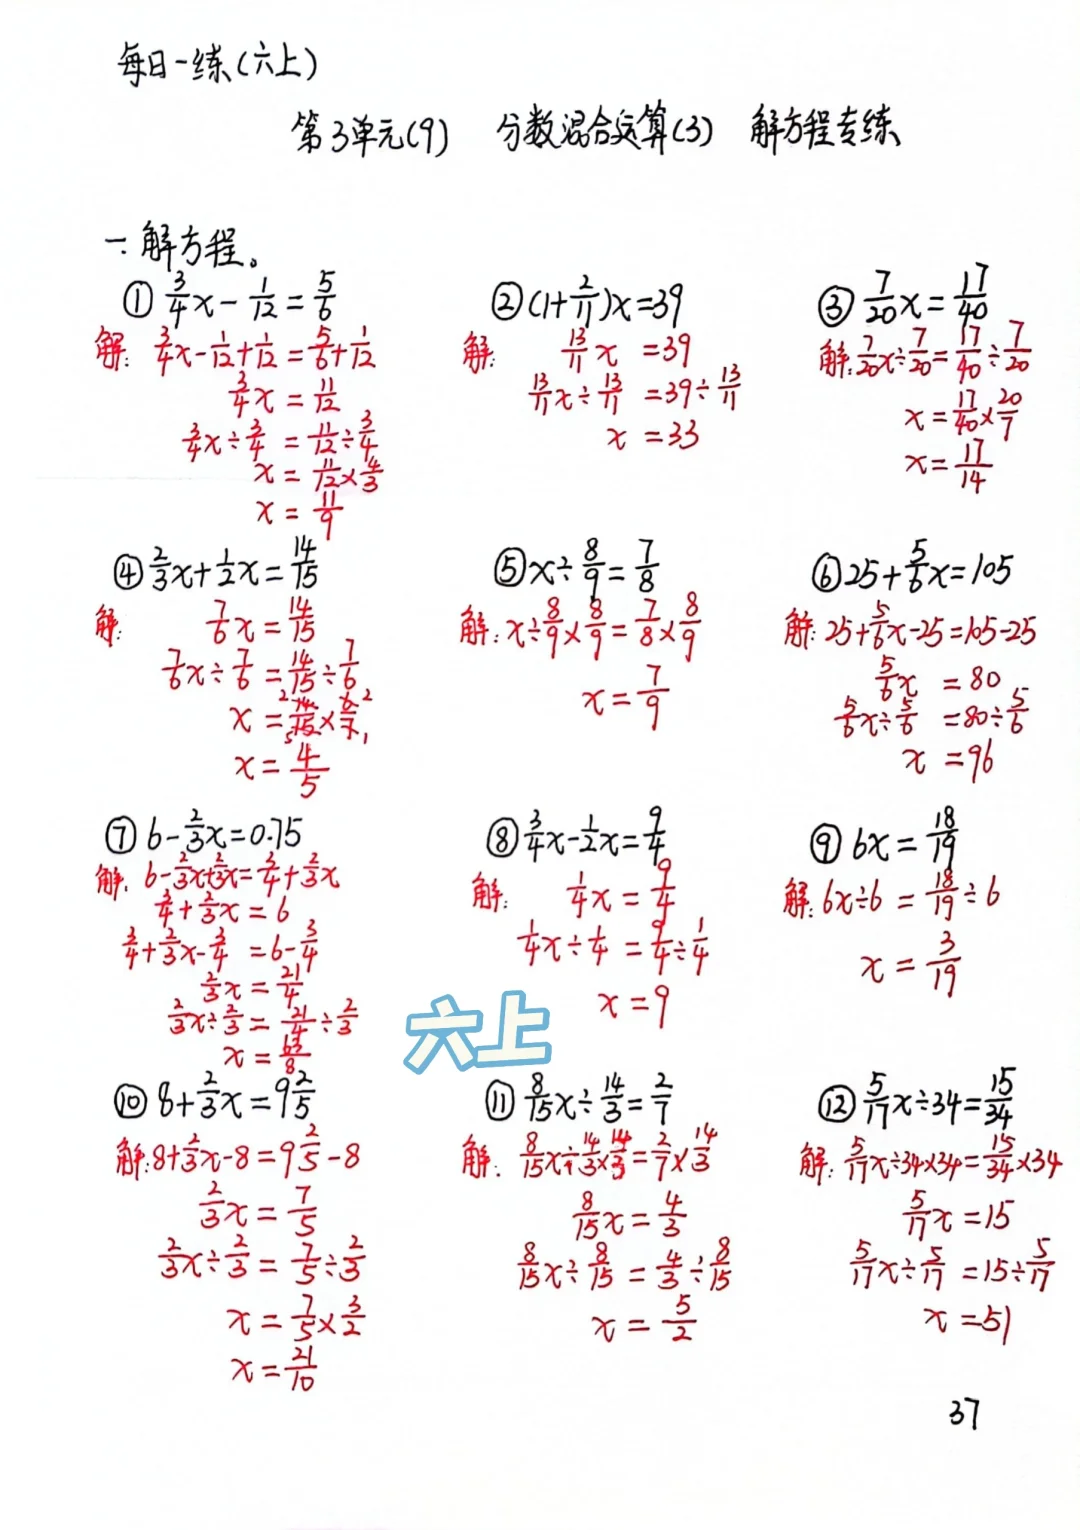 每日一练(六上)
第3单元(9) 分数混合运算(3) 解方程专练
一:解方程。
① 3/4x - 1/12 = 5/6
解: 3/4x - 1/12 + 1/12 = 5/6 + 1/12
3/4x = 11/12
3/4x ÷ 3/4 = 11/12 ÷ 3/4
x = 11/12 × 4/3
x = 11/9
② (1 + 2/11)x = 39
解: 13/11x = 39
13/11x ÷ 13/11 = 39 ÷ 13/11
x = 33
③ 7/20x = 17/40
解: 7/20x ÷ 7/20 = 17/40 ÷ 7/20
x = 17/40 × 20/7
x = 17/14
④ 2/3x + 1/2x = 14/15
解: 7/6x = 14/15
7/6x ÷ 7/6 = 14/15 ÷ 7/6
x = 14/15 × 6/7 2 2 5 1
x = 4/5
⑤ x ÷ 8/9 = 7/8
解: x ÷ 8/9 × 8/9 = 7/8 × 8/9
x = 7/9
⑥ 25 + 5/6x = 105
解: 25 + 5/6x - 25 = 105 - 25
5/6x = 80
5/6x ÷ 5/6 = 80 ÷ 5/6
x = 96
⑦ 6 - 2/3x = 0.75
解: 6 - 2/3x + 2/3x = 3/4 + 2/3x
3/4 + 2/3x = 6
3/4 + 2/3x - 3/4 = 6 - 3/4
2/3x = 21/4
2/3x ÷ 2/3 = 21/4 ÷ 2/3
x = 63/8
⑧ 3/4x - 1/2x = 9/4
解: 1/4x = 9/4
1/4x ÷ 1/4 = 9/4 ÷ 1/4
x = 9
⑨ 6x = 18/19
解: 6x ÷ 6 = 18/19 ÷ 6
x = 3/19
六上
⑩ 8 + 2/3x = 9 2/5
解: 8 + 2/3x - 8 = 9 2/5 - 8
2/3x = 7/5
2/3x ÷ 2/3 = 7/5 ÷ 2/3
x = 7/5 × 3/2
x = 21/10
⑪ 8/15x ÷ 14/3 = 2/7
解: 8/15x ÷ 14/3 × 14/3 = 2/7 × 14/3
8/15x = 4/3
8/15x ÷ 8/15 = 4/3 ÷ 8/15
x = 5/2
⑫ 5/17x ÷ 34 = 15/34
解: 5/17x ÷ 34 × 34 = 15/34 × 34
5/17x = 15
5/17x ÷ 5/17 = 15 ÷ 5/17
x = 51
37